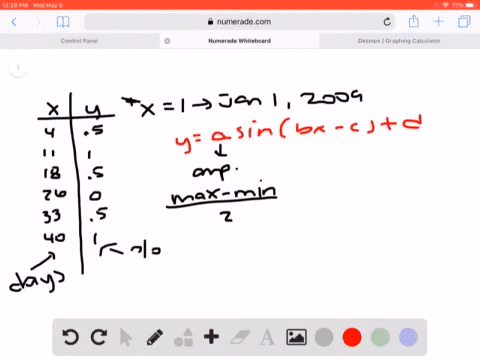 12:09 PM Wed May 6
77%
numerade.com
Control Panel
Numerade Whiteboard
Desmos | Graphing Calculator
1
x y
4 .5
11 1
18 .5
26 0
33 .5
40 1
days
*x=1→Jan 1, 2009
y=a sin(bx-c)+d
amp.
max-min
2